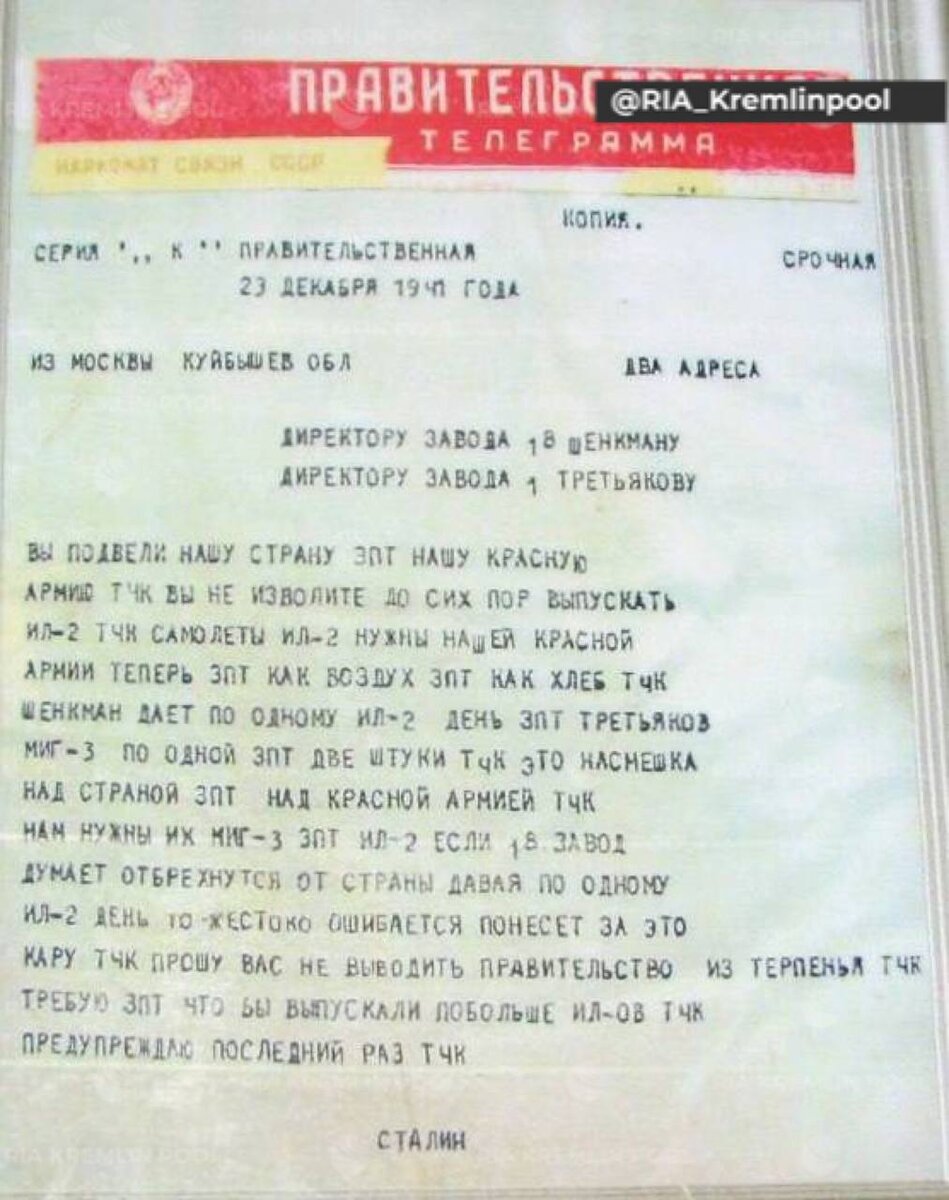 ПРАВИТЕЛЬСТВЕННАЯ
@RIA_Kremlinpool
ТЕЛЕГРАММА
НАРКОМАТ СВЯЗИ СССР
КОПИЯ.
СЕРИЯ ",, К " ПРАВИТЕЛЬСТВЕННАЯ СРОЧНАЯ
23 ДЕКАБРЯ 1941 ГОДА
ИЗ МОСКВЫ КУЙБЫШЕВ ОБЛ ДВА АДРЕСА
ДИРЕКТОРУ ЗАВОДА 18 ШЕНКМАНУ
ДИРЕКТОРУ ЗАВОДА 1 ТРЕТЬЯКОВУ
ВЫ ПОДВЕЛИ НАШУ СТРАНУ ЗПТ НАШУ КРАСНУЮ
АРМИЮ ТЧК ВЫ НЕ ИЗВОЛИТЕ ДО СИХ ПОР ВЫПУСКАТЬ
ИЛ-2 ТЧК САМОЛЕТЫ ИЛ-2 НУЖНЫ НАШЕЙ КРАСНОЙ
АРМИИ ТЕПЕРЬ ЗПТ КАК ВОЗДУХ ЗПТ КАК ХЛЕБ ТЧК
ШЕНКМАН ДАЕТ ПО ОДНОМУ ИЛ-2 ДЕНЬ ЗПТ ТРЕТЬЯКОВ
МИГ-3 ПО ОДНОЙ ЗПТ ДВЕ ШТУКИ ТЧК ЭТО НАСМЕШКА
НАД СТРАНОЙ ЗПТ НАД КРАСНОЙ АРМИЕЙ ТЧК
НАМ НУЖНЫ ИХ МИГ-3 ЗПТ ИЛ-2 ЕСЛИ 18 ЗАВОД
ДУМАЕТ ОТБРЕХНУТСЯ ОТ СТРАНЫ ДАВАЯ ПО ОДНОМУ
ИЛ-2 ДЕНЬ ТО ЖЕСТОКО ОШИБАЕТСЯ ПОНЕСЕТ ЗА ЭТО
КАРУ ТЧК ПРОШУ ВАС НЕ ВЫВОДИТЬ ПРАВИТЕЛЬСТВО ИЗ ТЕРПЕНЬЯ ТЧК
ТРЕБУЮ ЗПТ ЧТО БЫ ВЫПУСКАЛИ ПОБОЛЬШЕ ИЛ-ОВ ТЧК
ПРЕДУПРЕЖДАЮ ПОСЛЕДНИЙ РАЗ ТЧК
СТАЛИН
RIA KREMLIN POOL